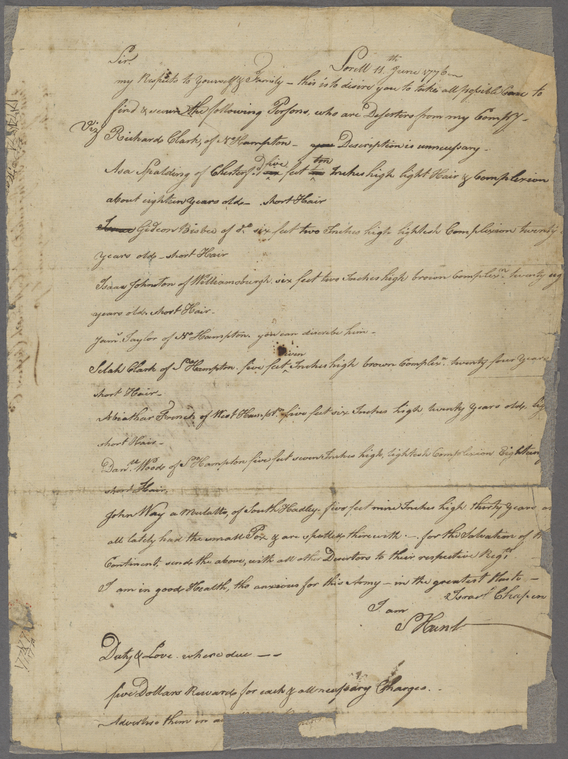 Sir. Sorell 11th June 1776—
my Respts to Yourself & Family — this is to desire you to take all possible Care to
find & secure the following Persons, who are Deserters from my Compy—
Viz Richard Clark, of No Hampton — Description is unnecessary—
Asa Spalding of Chesterfd five feet ten Inches high light Hair & Complexion
about eighteen years old — short Hair
Gideon Bisbee of do six feet two Inches high lightish Complexion twenty
years old — short Hair
Isaac Johnston of Williamsburgh six feet two Inches high brown Complexn twenty
years old short Hair.
Taylor of No Hampton you can discribe him—
Selah Clark of So Hampton five feet seven Inches high brown Complexn twenty four years
short Hair—
Abiathar French of West Hampt five feet six Inches high twenty years old,
short Hair—
Woods of So Hampton five feet seven Inches high, lightish Complexion Eighteen
short Hair,
John Way a Mulatto, of South Hadley, five feet nine Inches high thirty years
all lately had the small Pox & are spotted therewith — for the Salvation of
Continent, send the above, with all other Deserters to their respective Regts
I am in good Health, tho anxious for this Army — in the greatest Haste —
I am Israel Chapin
S Hunt
Duty & Love where due — —
five Dollars Reward for each & all necessary Charges..
Advertise them in a